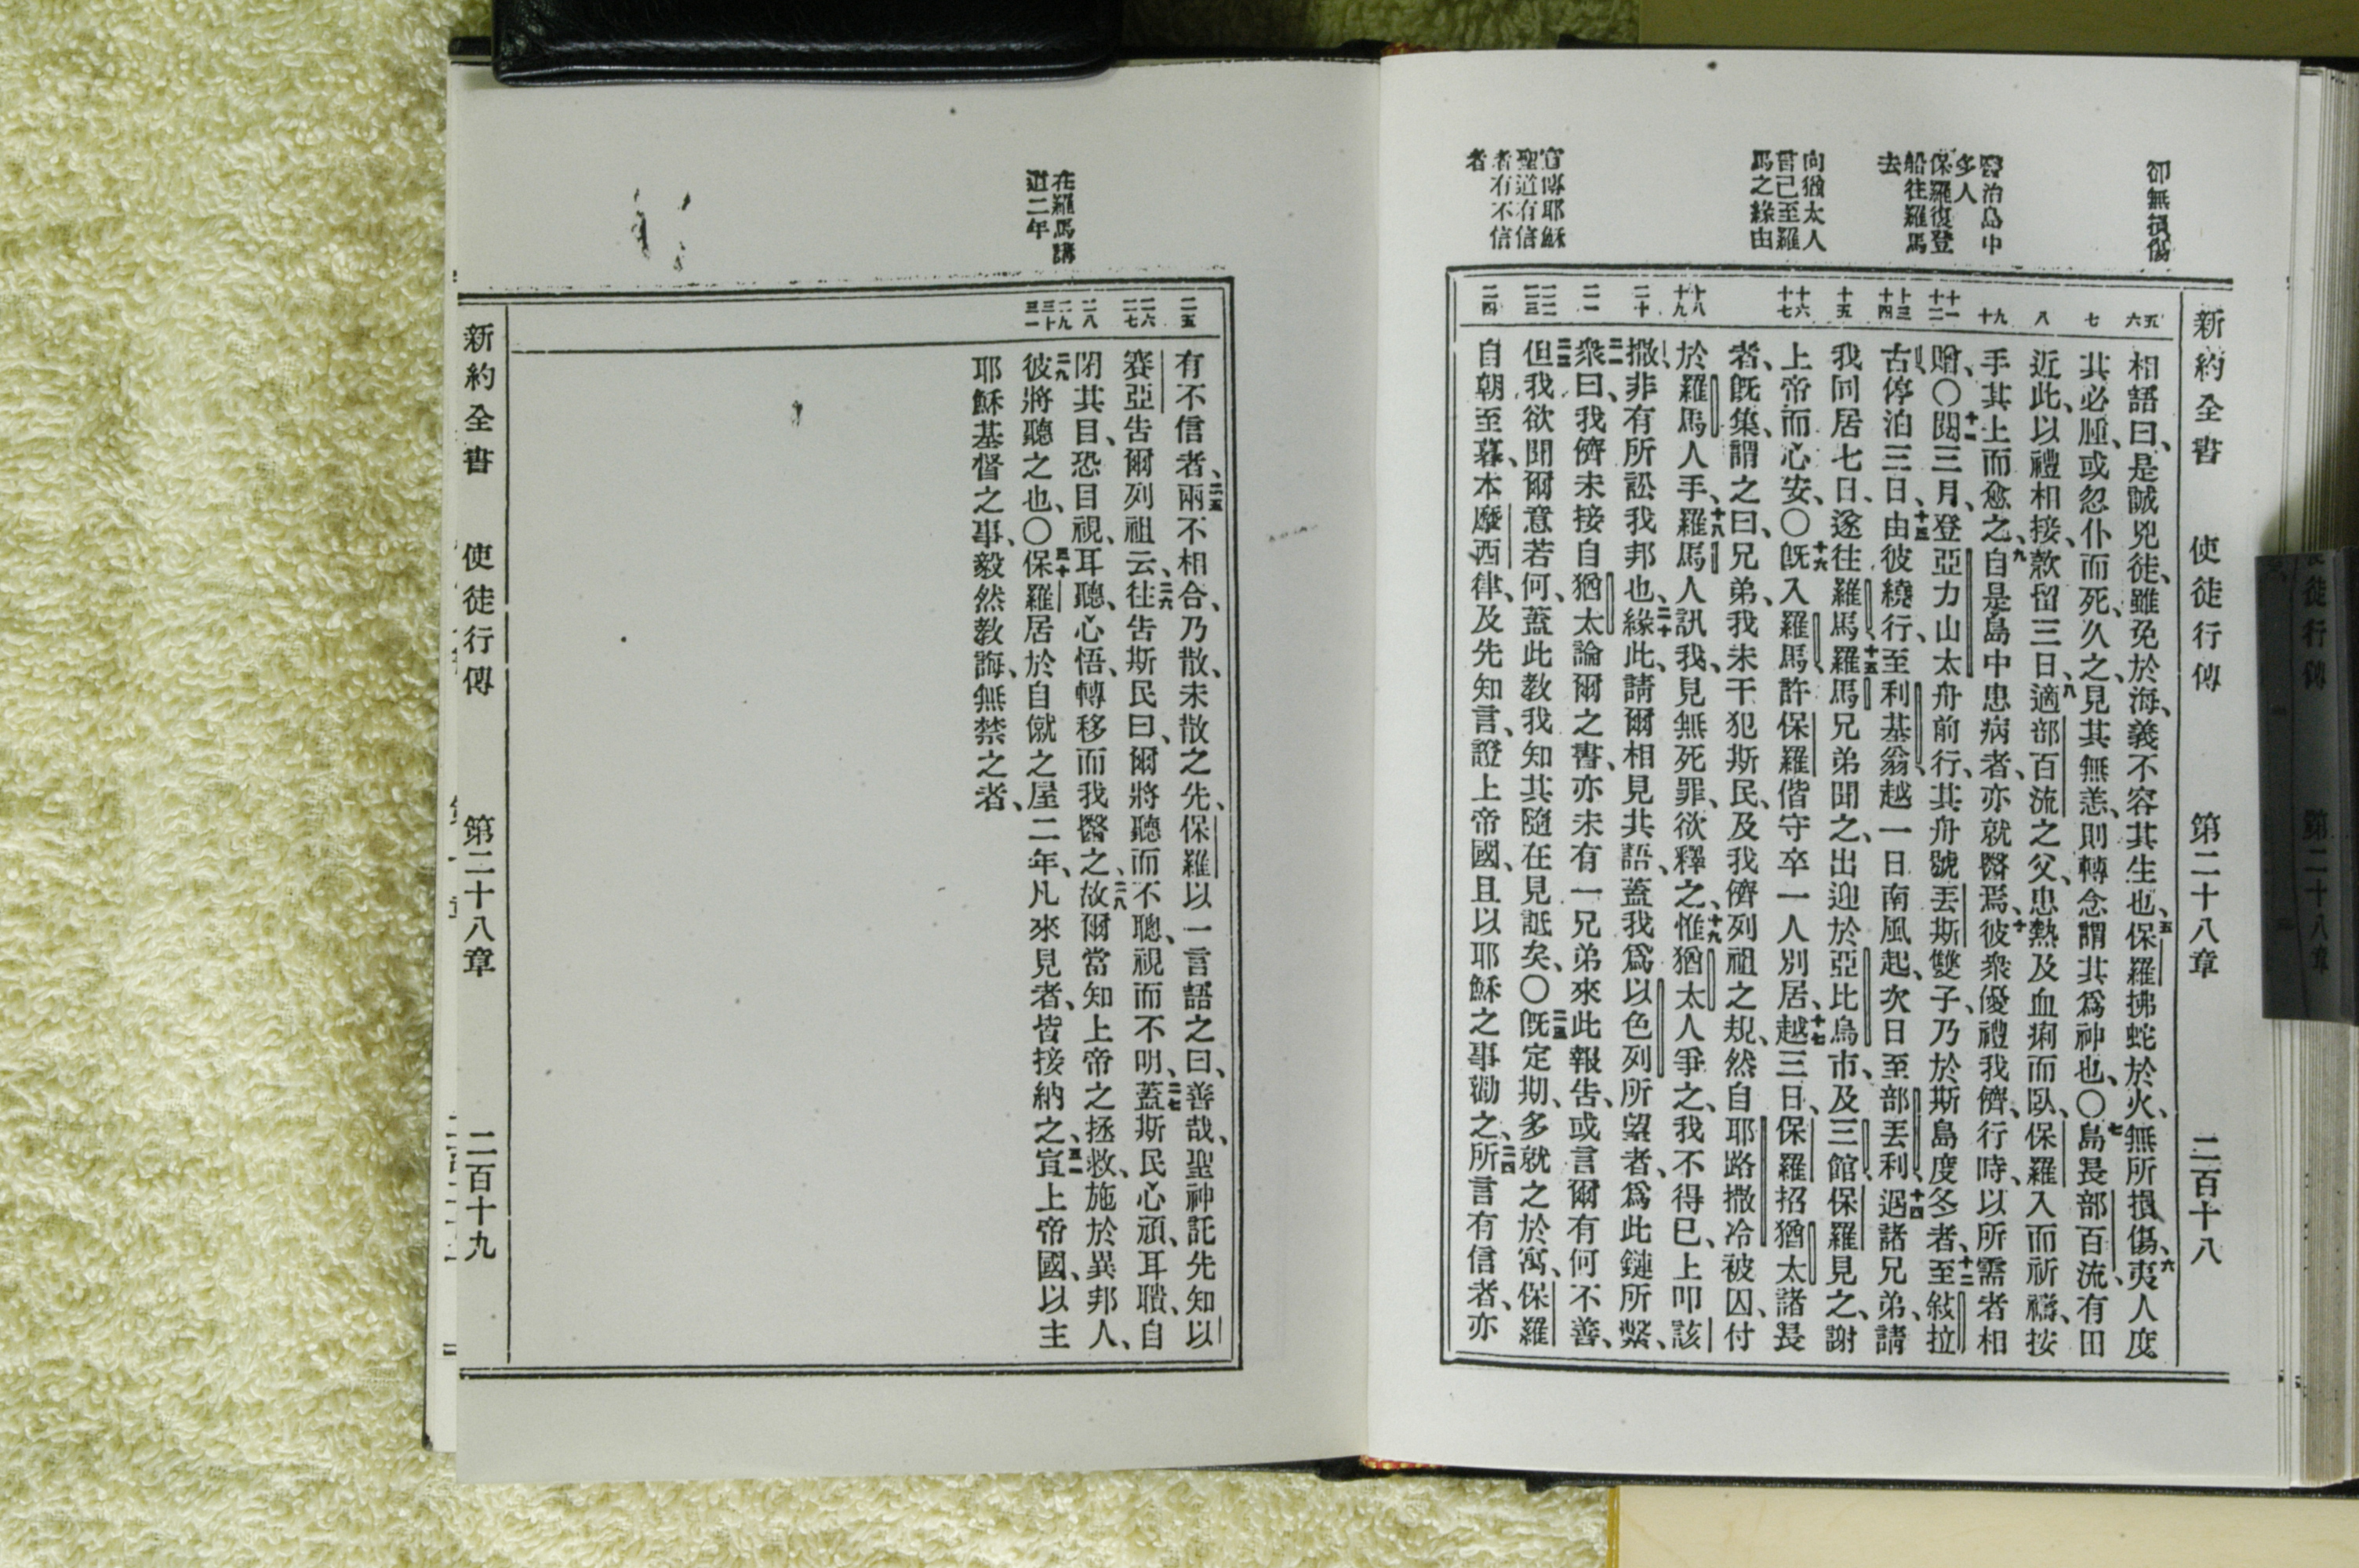 新約全書 使徒行傳 第二十八章 二百十八
卻無損傷
醫治島中
多人
保羅復登
船往羅馬
去
向猶太人
言己至羅
馬之緣由
宣傳耶穌
聖道有信
者有不信
者
五
六
七
八
九
十
十一
十二
十三
十四
十五
十六
十七
十八
十九
二十
二一
二二
二三
二四
相語曰、是誠兇徒、雖免於海、義不容其生也、五保羅拂蛇於火、無所損傷、六夷人度
其必腫、或忽仆而死、久之、見其無恙、則轉念謂其爲神也、〇七島長部百流、有田
近此、以禮相接、款留三日、八適部百流之父、患熱及血痢而臥、保羅入而祈禱、按
手其上而愈之、九自是島中患病者、亦就醫焉、十彼衆優禮我儕、行時、以所需者相
贈、〇十一閱三月、登亞力山太舟前行、其舟號丟斯雙子、乃於斯島度冬者、十二至敍拉
古、停泊三日、十三由彼繞行、至利基翁、越一日南風起、次日至部丟利、十四遇諸兄弟、請
我同居七日、遂往羅馬、十五羅馬兄弟聞之、出迎於亞比烏市、及三館、保羅見之、謝
上帝而心安、〇十六旣入羅馬、許保羅偕守卒一人別居、十七越三日、保羅招猶太諸長
者、旣集、謂之曰、兄弟、我未干犯斯民、及我儕列祖之規、然自耶路撒冷被囚、付
於羅馬人手、十八羅馬人訊我、見無死罪、欲釋之、十九惟猶太人爭之、我不得已、上叩該
撒、非有所訟我邦也、二十緣此、請爾相見共語、蓋我爲以色列所望者、爲此鏈所繫、
二一衆曰、我儕未接自猶太論爾之書、亦未有一兄弟來此報告、或言爾有何不善、
二二但我欲聞爾意若何、蓋此教我知其隨在見詆矣、〇二三旣定期、多就之於寓、保羅
自朝至暮、本摩西律、及先知言、證上帝國、且以耶穌之事勸之、二四所言有信者、亦
在羅馬講
道二年
二五
二六
二七
二八
二九
三十
三一
有不信者、二五兩不相合、乃散、未散之先、保羅以一言語之曰、善哉、聖神託先知以
賽亞告爾列祖云、二六往告斯民曰、爾將聽而不聰、視而不明、二七蓋斯民心頑、耳聵、自
閉其目、恐目視、耳聽、心悟、轉移而我醫之、二八故爾當知上帝之拯救、施於異邦人、
二九彼將聽之也、〇三十保羅居於自僦之屋二年、凡來見者、皆接納之、三一宣上帝國、以主
耶穌基督之事、毅然教誨、無禁之者、
新約全書 使徒行傳 第二十八章 二百十九